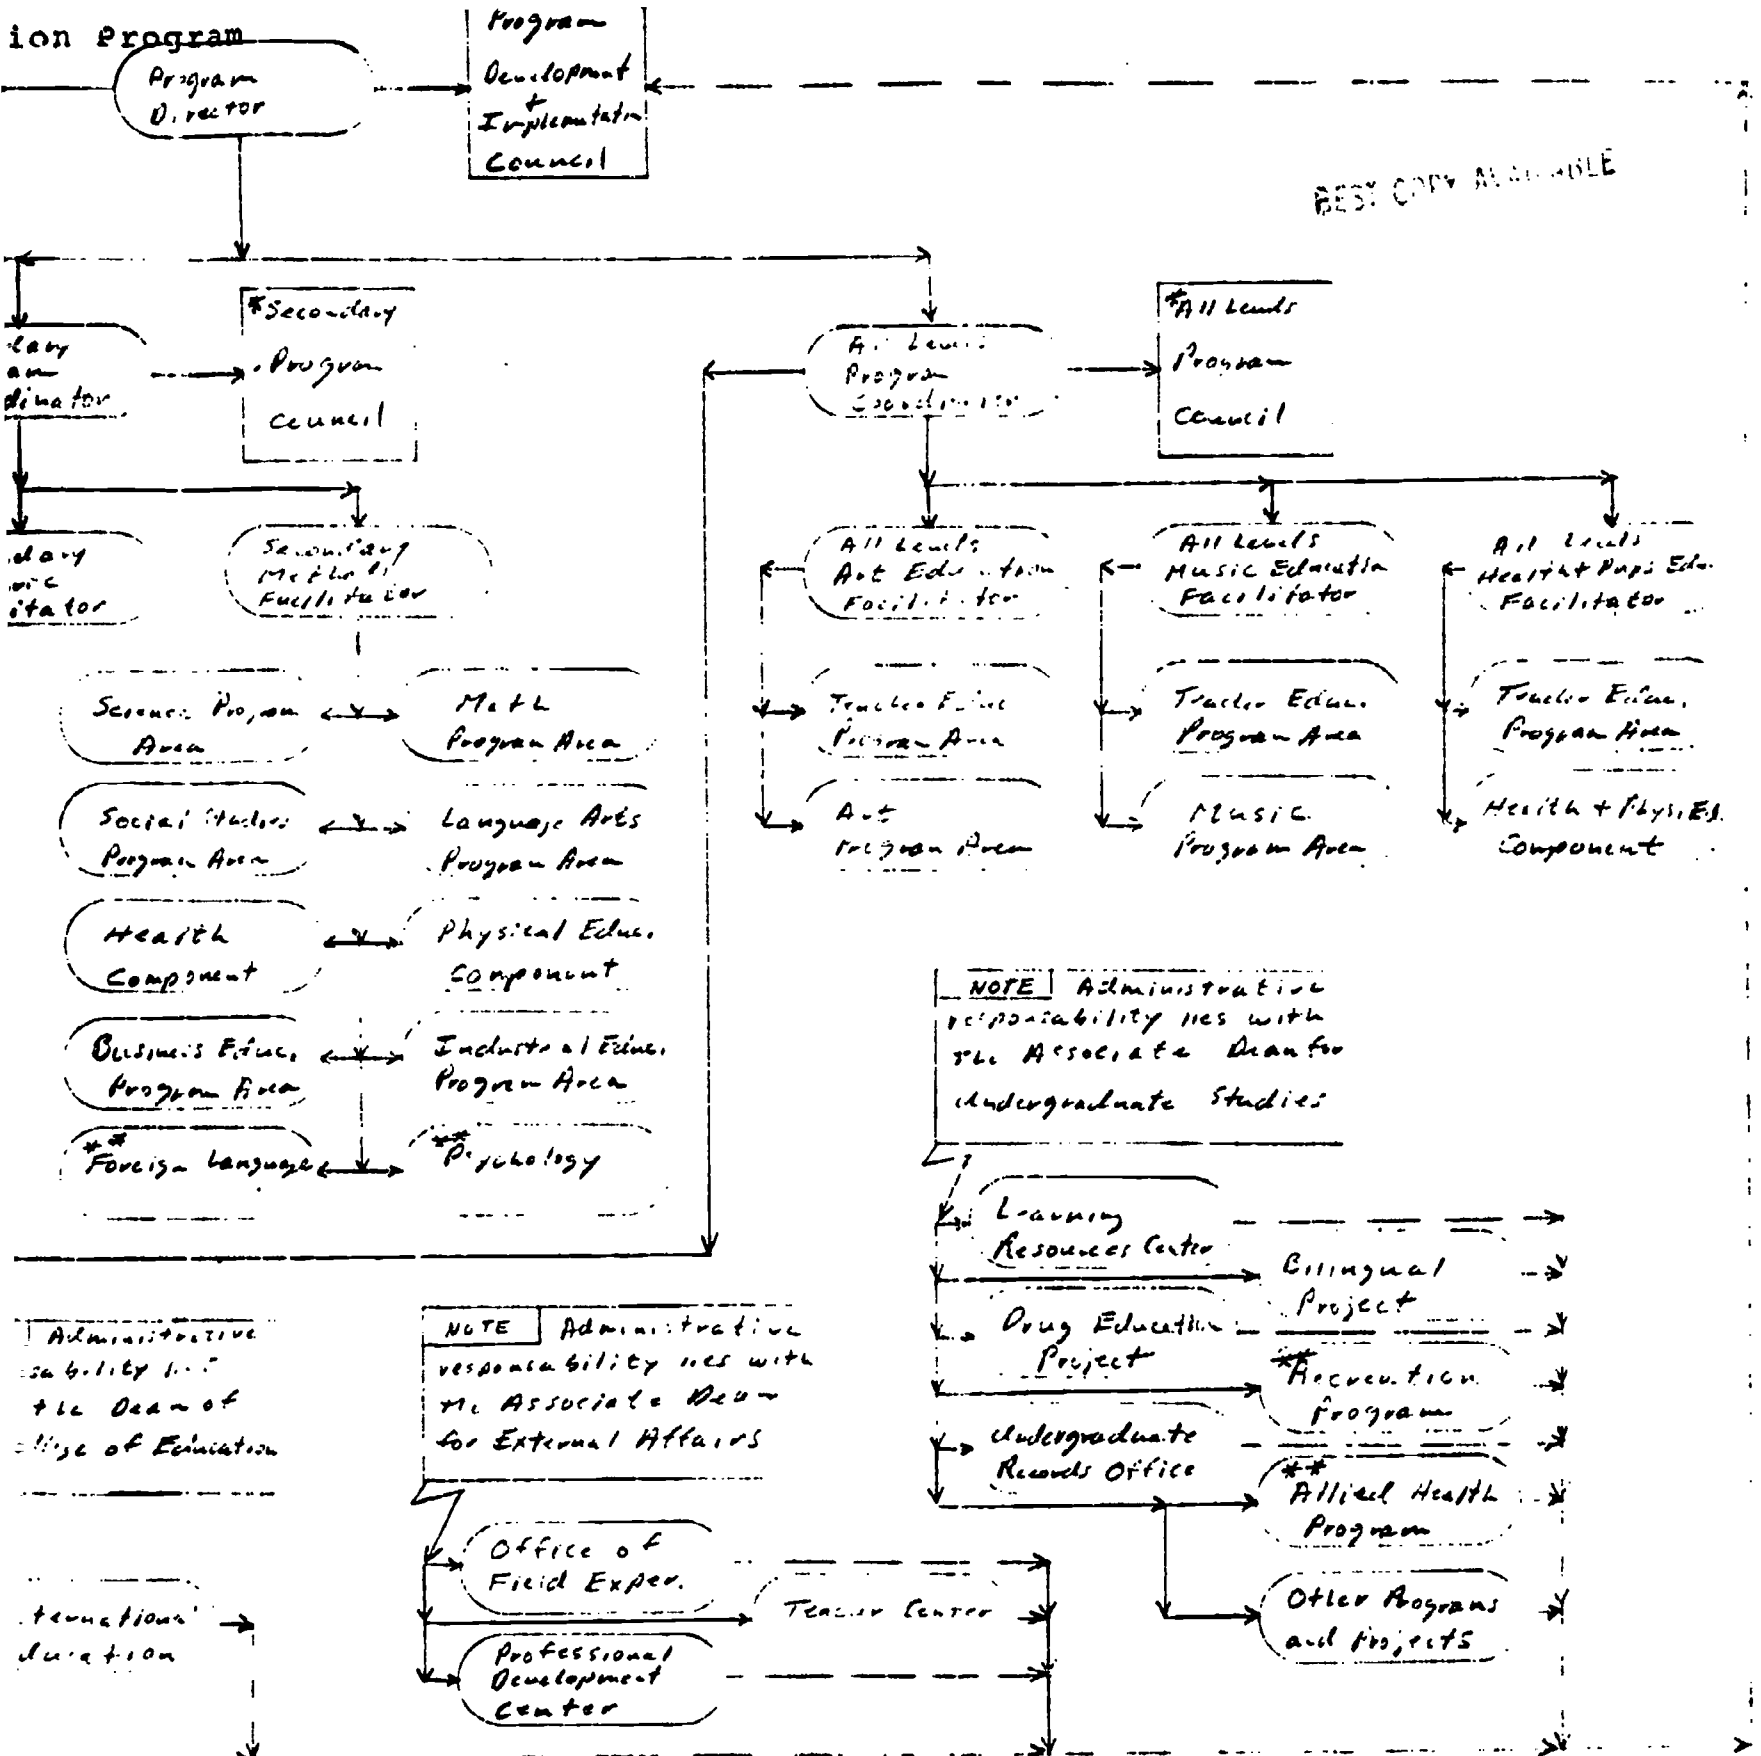 ion Program
Program
Director
Program
Development
+
Implementatn
Council
BEST COPY AVAILABLE
*Secondary
Program
Council
dary
am
dinator
All Levels
Program
Coordinator
*All Levels
Program
Council
dary
itator
Secondary
Methods
Facilitator
All Levels
Art Education
Facilitator
All Levels
Music Educatin
Facilitator
All Levels
Health + Phys Edu.
Facilitator
Science Program
Area
Math
Program Area
Teacher Educ
Program Area
Teacher Educ.
Program Area
Teacher Educ.
Program Area
Social Studies
Program Area
Language Arts
Program Area
Art
Program Area
Music
Program Area
Health + Phys. Ed.
Component
Health
Component
Physical Educ.
Component
Business Educ.
Program Area
Industrial Educ.
Program Area
**
Foreign Language
**
Psychology
NOTE Administrative
responsability lies with
the Associate Dean for
Undergraduate Studies
Learning
Resources Center
Bilingual
Project
Drug Education
Project
**
Recreation
Program
Undergraduate
Records Office
**
Allied Health
Program
Other Programs
and Projects
Administrative
sability lies
the Dean of
llege of Education
NOTE Administrative
responsability lies with
the Associate Dean
for External Affairs
Office of
Field Exper.
Teacher Center
Professional
Development
Center
ternational
ducation